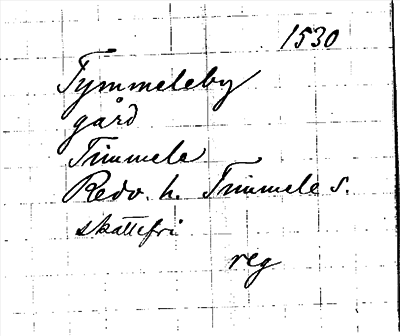 1530
Tymmeleby
gård
Timmele
Redv. h. Timmele s.
skattefri
reg